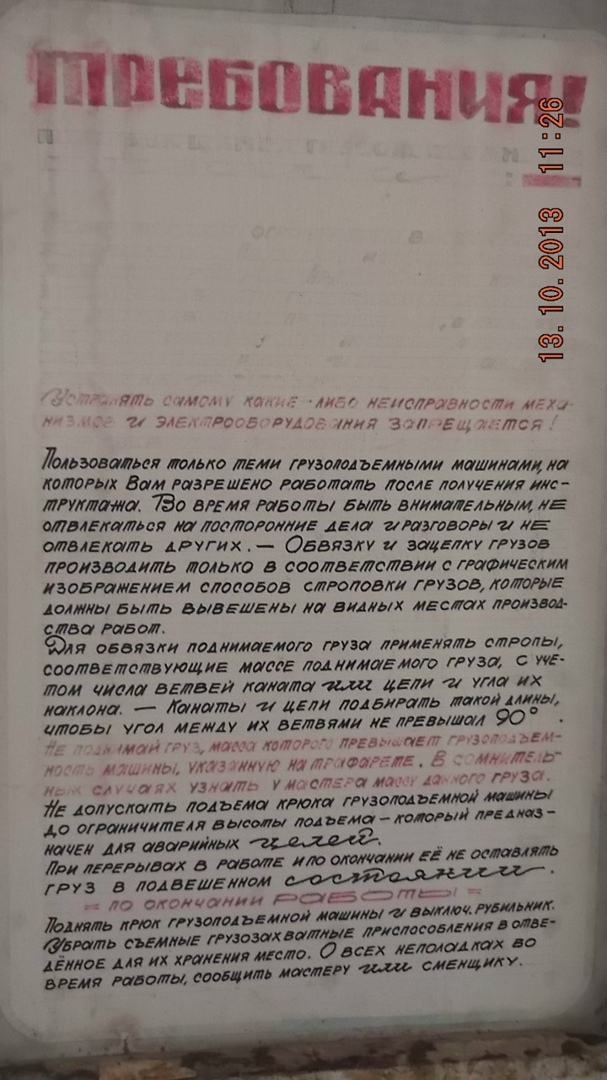 Требования!
13.10.2013 11:26
Устранять самому какие-либо неисправности меха-
низмов и электрооборудования запрещается!
Пользоваться только теми грузоподъемными машинами, на
которых Вам разрешено работать после получения инс-
труктажа. Во время работы быть внимательным, не
отвлекаться на посторонние дела и разговоры и не
отвлекать других. — Обвязку и зацепку грузов
производить только в соответствии с графическим
изображением способов строповки грузов, которые
должны быть вывешены на видных местах производ-
ства работ.
Для обвязки поднимаемого груза применять стропы,
соответствующие массе поднимаемого груза, с учё-
том числа ветвей каната или цепи и угла их
наклона. — Канаты и цепи подбирать такой длины,
чтобы угол между их ветвями не превышал 90°.
Не поднимай груз, масса которого превышает грузоподъем-
ность машины, указанную на трафарете. В сомнитель-
ных случаях узнать у мастера массу данного груза.
Не допускать подъема крюка грузоподъемной машины
до ограничителя высоты подъема — который предназ-
начен для аварийных целей.
При перерывах в работе и по окончании её не оставлять
груз в подвешенном состоянии.
= по окончании работы =
Поднять крюк грузоподъемной машины и выключ. рубильник.
Убрать съемные грузозахватные приспособления в отве-
дённое для их хранения место. О всех неполадках во
время работы, сообщить мастеру или сменщику.